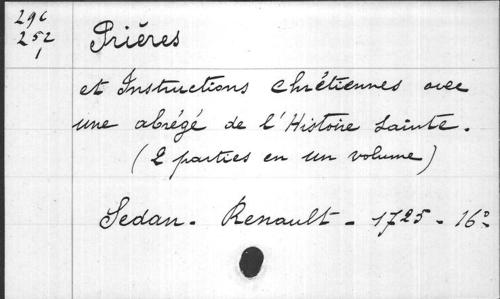 296
252
1
Prières
et Instructions Chrétiennes avec
une abrégé de l'Histoire Sainte.
(2 parties en un volume)
Sedan - Renault - 1725 - 16°